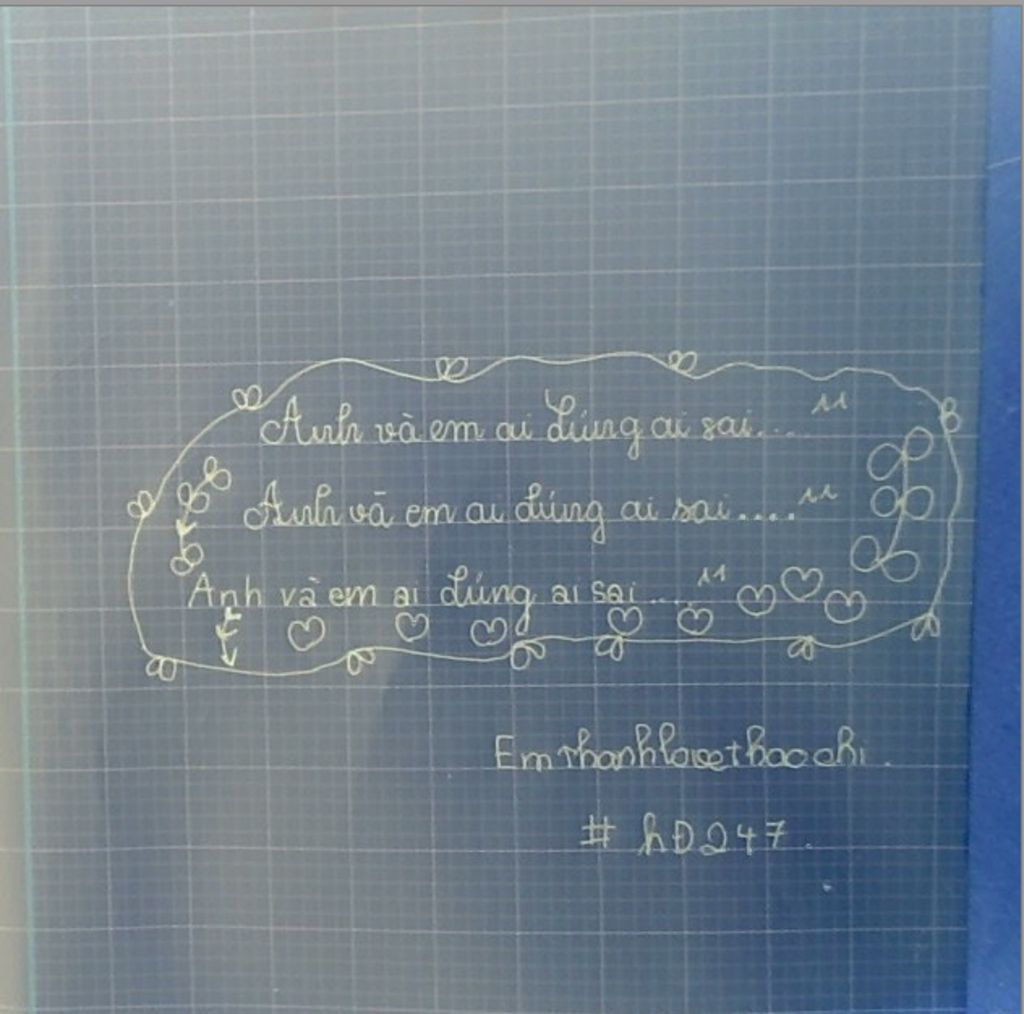 Anh và em ai đúng ai sai... "
Anh và em ai đúng ai sai.... "
Anh và em ai đúng ai sai.... "
Emthanhlovethaochi.
# hĐ247.